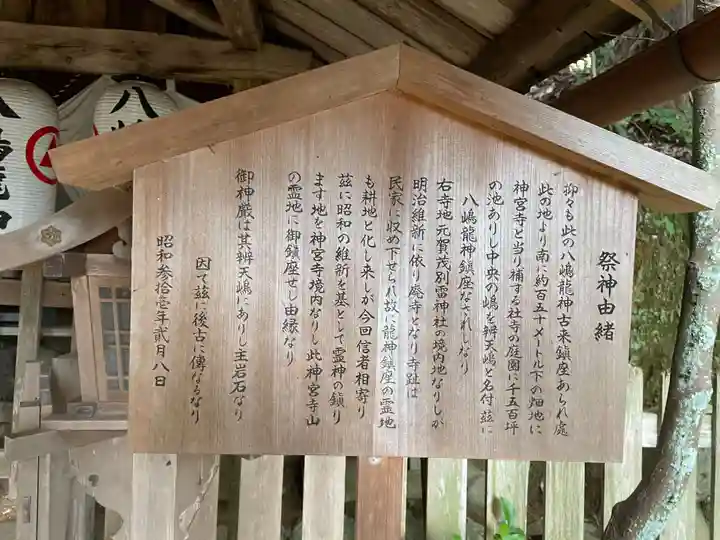 祭神由緒
抑々も此の八嶋龍神古来鎮座あられ処
此の地より南に約百五十メートル下の畑地に
神宮寺と当り補する社寺の庭園に千五百坪
の池ありし中央の嶋を辨天嶋と名付 茲に
八嶋龍神鎮座なされしなり
右寺地元賀茂別雷神社の境内地なりしが
明治維新に依り廃寺となり寺趾は
民家に収め下せられ故に龍神鎮座の霊地
も耕地と化し来しが今回信者相寄り
茲に昭和の維新を基として霊神の鎮り
ます地を神宮寺境内なりし此神宮寺山
の霊地に御鎮座せし由縁なり
御神厳は其辨天嶋にありし主岩石なり
因て茲に後古に傳なるなり
昭和参拾壱年弐月八日
八嶋龍神
八嶋